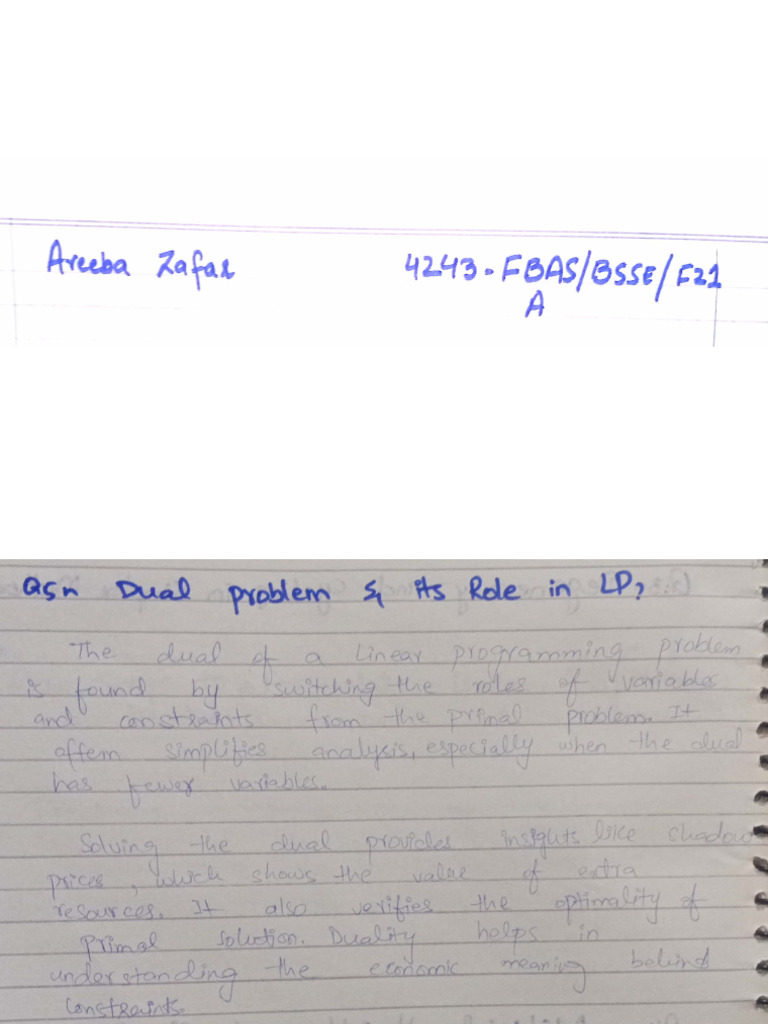 Areeba Zafar 4243-FBAS/BSSE/F21
A
Q5:- Dual problem & its Role in LP?
The dual of a Linear programming problem
is found by switching the roles of variables
and constraints from the primal problem. It
offem simplifies analysis, especially when the dual
has fewer variables.
Solving the dual provides insights like shadow
prices, which shows the value of extra
resources. It also verifies the optimality of
primal solution. Duality helps in
understanding the economic meaning behind
constraints.